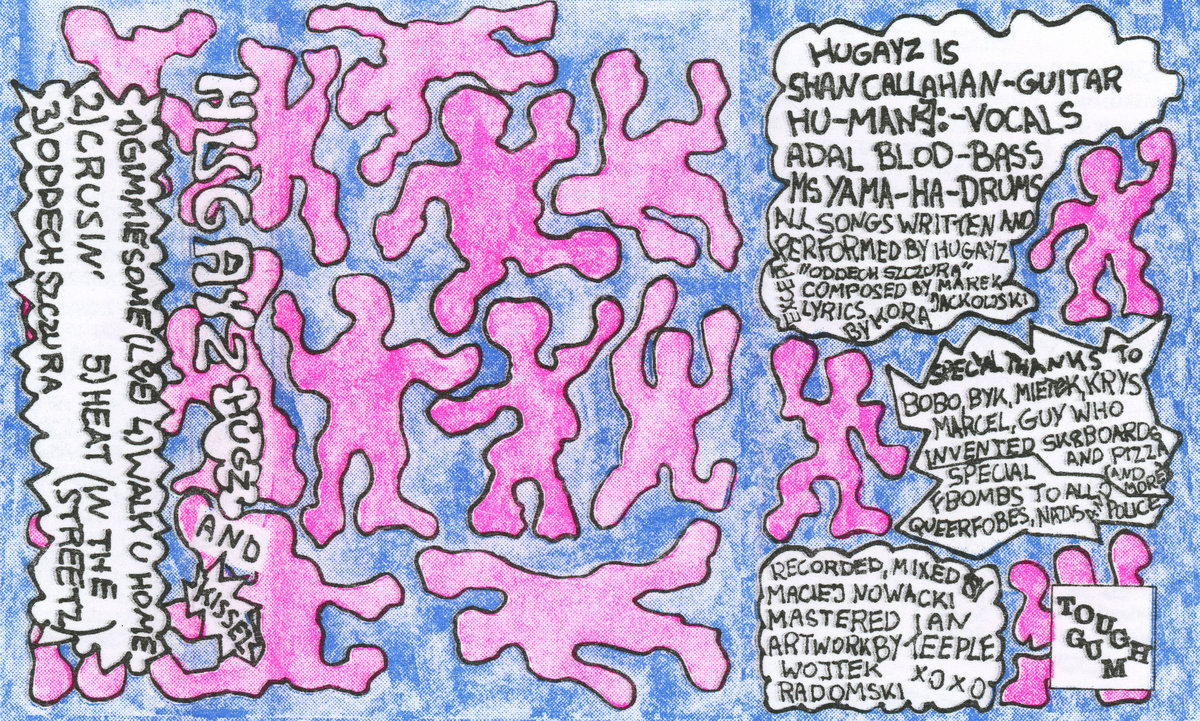 1)GIMMIE SOME 4)WALK U HOME
2)CRUSIN' 5)HEAT (IN THE
3)ODDECH SZCZURA STREETZ)
HUGAYZ
HUGZ
AND
KISSEZ
HUGAYZ IS
SHAN CALLAHAN-GUITAR
HU-MAN :-VOCALS
ADAL BLOD-BASS
MS YAMA-HA-DRUMS
ALL SONGS WRITTEN AND
PERFORMED BY HUGAYZ
EXCEPT "ODDECH SZCZURA"
COMPOSED BY MAREK
JACKOWSKI
LYRICS
BY KORA
SPECIAL THANKS TO
BOBO, BYK, MIETEK, KRYS
MARCEL, GUY WHO
INVENTED SK8BOARDS
AND PIZZA
(AND MORE)
SPECIAL
FBOMBS TO ALL
QUEERFOBES, NAZIS AND POLICE
RECORDED, MIXED BY
MACIEJ NOWACKI
MASTERED IAN
ARTWORK BY TEEPLE
WOJTEK
RADOMSKI XOXO
TOUGH
GUM